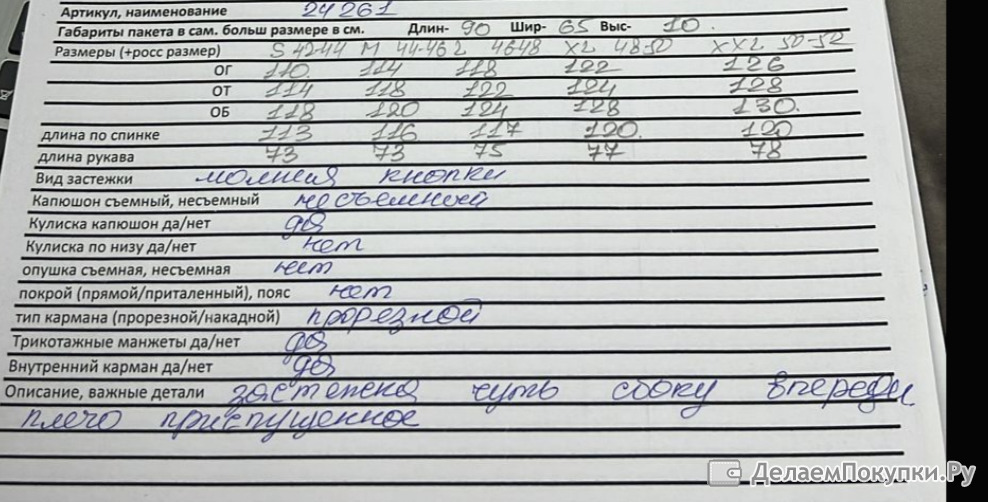 Артикул, наименование 24261
Габариты пакета в сам. больш размере в см. Длин- 90 Шир- 65 Выс- 10.
Размеры (+росс размер) S 42-44 M 44-46 L 4648 XL 48-50 XXL 50-52
ОГ 110 114 118 122 126
ОТ 114 118 122 124 128
ОБ 118 120 124 128 130.
длина по спинке 113 116 117 120. 120
длина рукава 73 73 75 77 78
Вид застежки молния кнопки
Капюшон съемный, несъемный несъемной
Кулиска капюшон да/нет да
Кулиска по низу да/нет нет
опушка съемная, несъемная нет
покрой (прямой/приталенный), пояс нет
тип кармана (прорезной/накадной) прорезной
Трикотажные манжеты да/нет да
Внутренний карман да/нет да
Описание, важные детали застежка чуть сбоку впереди
плечо приспущенное
ДелаемПокупки.Ру